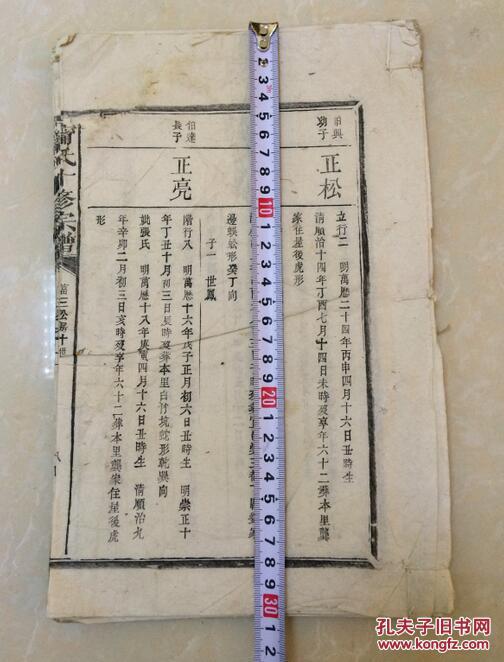 伯興
功子
正松
立行二 明萬曆二十四年丙申四月十六日丑時生
清順治十四年丁酉七月十四日未時歿享年六十二葬本里龔
家住屋後虎形
邊蜈蚣形癸丁向
子一 世鳳
伯達
長子
正亮
階行八 明萬曆十六年戊子正月初六日丑時生 明崇正十
年丁丑十月初三日 時歿葬本里白竹坑蛇形乾巽向
妣張氏 明萬曆十八年庚寅四月十六日丑時生 清順治九
年辛卯二月初三日亥時歿享年六十二葬本里龔家住屋後虎
形
氏十修宗譜
2 3 4 5 6 7 8 9 10 1 2 3 4 5 6 7 8 9 20 1 2 3 4 5 6 7 8 9 30 1 2
孔夫子旧书网
KONGFZ.COM